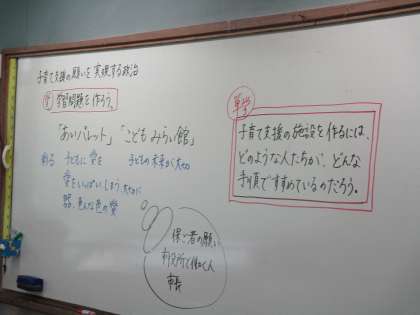 子育て支援の願いを実現する政治
学習問題を作ろう。
「あいパレット」「こども みらい館」
子どもに愛を
子どもの未来が大切
愛をいっぱいしまう
色んな色の愛
保ご者の願い
市役所で働く人
市長
単学
子育て支援の施設を作るには、
どのような人たちが、どんな
手順ですすめているのだろう。